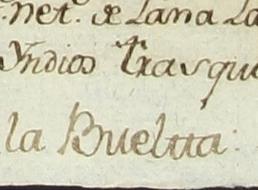 net. de Lana La
Yndios trasqu
la Buelta: